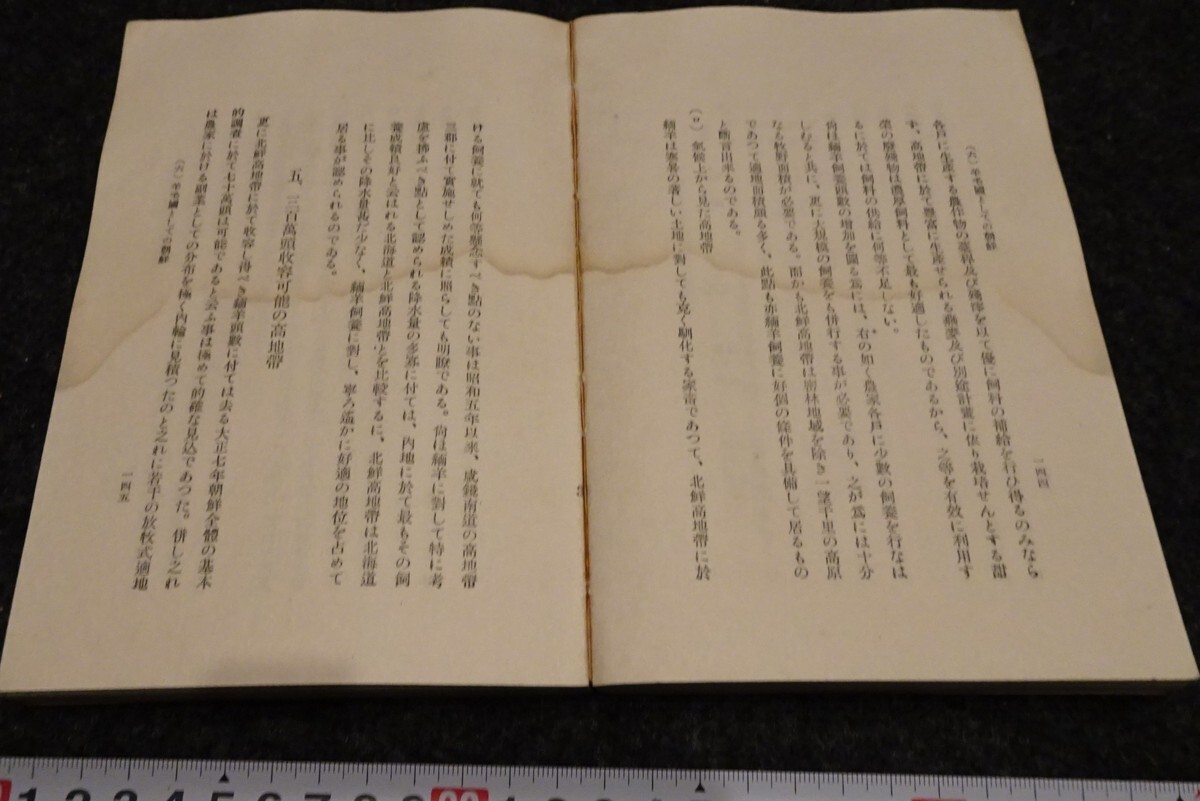 (六) 羊毛國としての朝鮮
一四四
各戸に生産する農作物の藁稈及び殘滓を以て優に飼料の補給を行ひ得るのみなら
す、高地帶に於て豐富に生産せられる燕麥及び別途計畫に依り栽培せんとする甜
菜の廢殘物は濃厚飼料として最も好適したものであるから、之等を有效に利用す
るに於ては飼料の供給に何等不足しない。
尙ほ緬羊飼養頭數の增加を圖る爲には、右の如く農家各戸に少數の飼養を行なは
しむると共に、更に大規模の飼養をも併行する事が必要であり、之が爲には十分
なる牧野面積が必要である。而かも北鮮高地帶は密林地域を除き一望千里の高原
であつて適地面積頗る多く、此點も亦緬羊飼養に好個の條件を具備して居るもの
と斷言出來るのである。
(ロ) 氣候上から見た高地帶
緬羊は寒暑の著しい土地に對しても克く馴化する家畜であつて、北鮮高地帶に於
ける飼養に就ても何等懸念すべき點のない事は昭和五年以來、咸鏡南道の高地帶
三郡に付て實施せしめた成績に照らしても明瞭である。尙ほ緬羊に對して特に考
慮を拂ふべき點として認められる降水量の多寡に付ては、內地に於て最もその飼
養成績良好と云はれる北海道と北鮮高地帶とを比較するに、北鮮高地帶は北海道
に比しその降水量甚だ少なく、緬羊飼養に對し、寧ろ遙かに好適の地位を占めて
居る事が認められるのである。
五、三百萬頭收容可能の高地帶
更に北鮮高地帶に於て收容し得べき緬羊頭數に付ては去る大正七年朝鮮全體の基本
的調査に於て七十萬頭は可能であると云ふ事は極めて的確な見込であつた。併し之れ
は農家に於ける副業としての分布を極く內輪に見積つたのと之れに若干の放牧式適地
(六) 羊毛國としての朝鮮
一四五
1 2 3 4 5 6 7 8 9 20 1